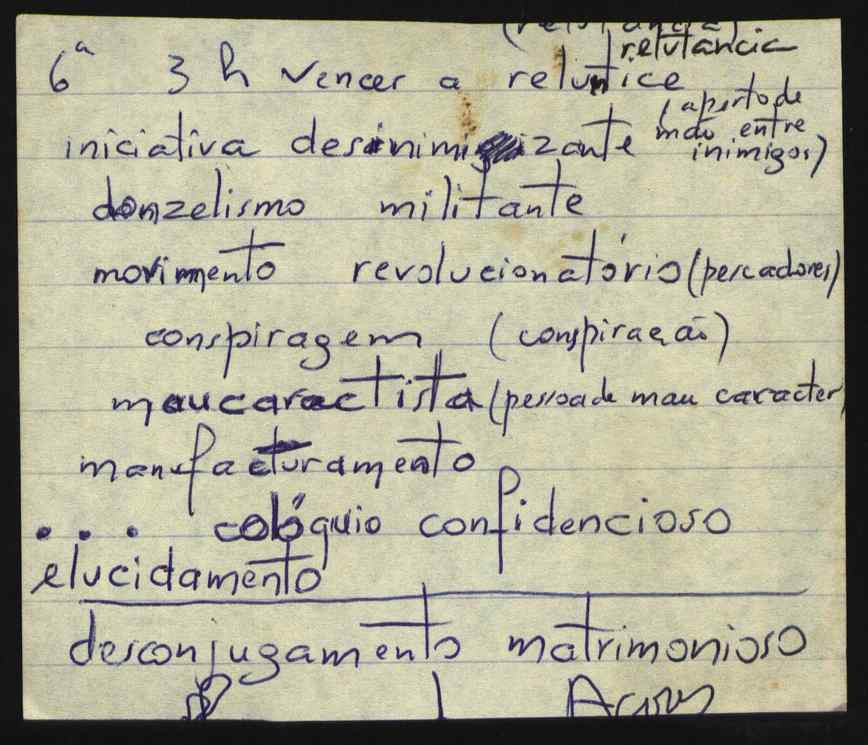 relutância
6ª 3 h vencer a relutice
iniciativa desinimizante (aperto de
mão entre
inimigos)
donzelismo militante
movimento revolucionatório (pescadores)
conspiragem (conspiração)
maucaractista (pessoa de mau caracter
manufacturamento
... colóquio confidencioso
elucidamento
desconjugamento matrimonioso